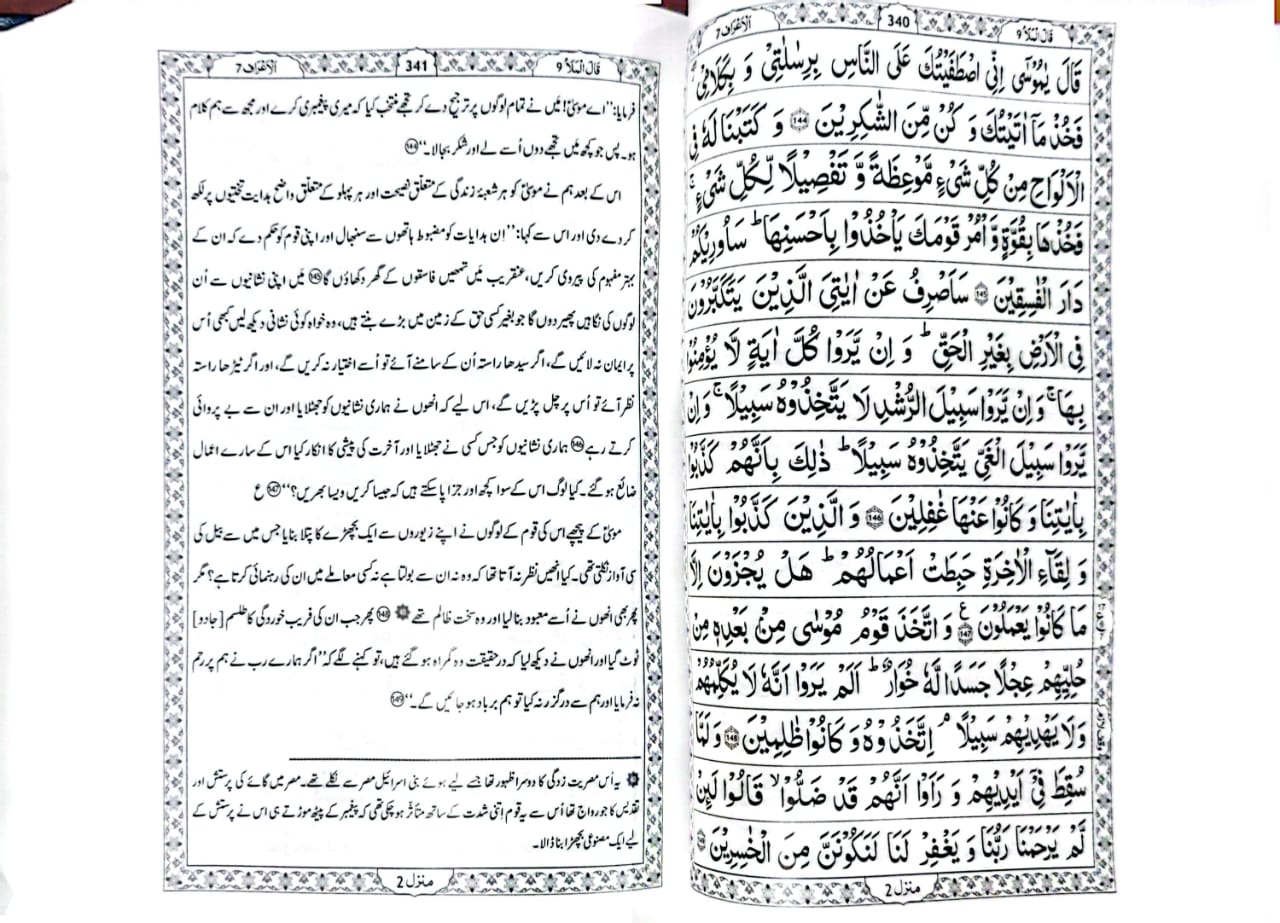 قَالَ الْمَلَاُ ٩
340
اَلْاَعْرَاف 7
قَالَ يٰمُوْسٰۤى اِنِّی اصْطَفَيْتُكَ عَلَى النَّاسِ بِرِسٰلٰتِیْ وَ بِكَلَامِیْ ۖ
فَخُذْ مَاۤ اٰتَيْتُكَ وَ كُنْ مِّنَ الشّٰكِرِيْنَ ﴿144﴾ وَ كَتَبْنَا لَهٗ فِی
الْاَلْوَاحِ مِنْ كُلِّ شَیْءٍ مَّوْعِظَةً وَّ تَفْصِيْلًا لِّكُلِّ شَیْءٍ ۚ
فَخُذْهَا بِقُوَّةٍ وَّ اْمُرْ قَوْمَكَ يَاْخُذُوْا بِاَحْسَنِهَا ؕ سَاُورِيْكُمْ
دَارَ الْفٰسِقِيْنَ ﴿145﴾ سَاَصْرِفُ عَنْ اٰيٰتِیَ الَّذِيْنَ يَتَكَبَّرُوْنَ
فِی الْاَرْضِ بِغَيْرِ الْحَقِّ ؕ وَ اِنْ يَّرَوْا كُلَّ اٰيَةٍ لَّا يُؤْمِنُوْا
بِهَا ۚ وَ اِنْ يَّرَوْا سَبِيْلَ الرُّشْدِ لَا يَتَّخِذُوْهُ سَبِيْلًا ۚ وَ اِنْ
يَّرَوْا سَبِيْلَ الْغَیِّ يَتَّخِذُوْهُ سَبِيْلًا ؕ ذٰلِكَ بِاَنَّهُمْ كَذَّبُوْا
بِاٰيٰتِنَا وَ كَانُوْا عَنْهَا غٰفِلِيْنَ ﴿146﴾ وَ الَّذِيْنَ كَذَّبُوْا بِاٰيٰتِنَا
وَ لِقَآءِ الْاٰخِرَةِ حَبِطَتْ اَعْمَالُهُمْ ؕ هَلْ يُجْزَوْنَ اِلَّا
مَا كَانُوْا يَعْمَلُوْنَ ﴿147﴾ ع وَ اتَّخَذَ قَوْمُ مُوْسٰى مِنْۢ بَعْدِهٖ مِنْ
حُلِيِّهِمْ عِجْلًا جَسَدًا لَّهٗ خُوَارٌ ؕ اَلَمْ يَرَوْا اَنَّهٗ لَا يُكَلِّمُهُمْ
وَلَا يَهْدِيْهِمْ سَبِيْلًا ۘ اِتَّخَذُوْهُ وَ كَانُوْا ظٰلِمِيْنَ ﴿148﴾ وَ لَمَّا
سُقِطَ فِیْۤ اَيْدِيْهِمْ وَ رَاَوْا اَنَّهُمْ قَدْ ضَلُّوْا ۙ قَالُوْا لَئِنْ
لَّمْ يَرْحَمْنَا رَبُّنَا وَ يَغْفِرْ لَنَا لَنَكُوْنَنَّ مِنَ الْخٰسِرِيْنَ ﴿149﴾
منزل 2
قَالَ الْمَلَاُ ٩
341
اَلْاَعْرَاف 7
فرمایا: ”اے موسٰیؑ! مَیں نے تمام لوگوں پر ترجیح دے کر تجھے منتخب کیا کہ میری پیغمبری کرے اور مجھ سے ہم کلام
ہو۔ پس جو کچھ مَیں تجھے دوں اُسے لے اور شکر بجا لا۔“ ﴿144﴾
اس کے بعد ہم نے موسٰیؑ کو ہر شعبۂ زندگی کے متعلق نصیحت اور ہر پہلو کے متعلق واضح ہدایت تختیوں پر لکھ
کر دے دی اور اس سے کہا: ”اِن ہدایات کو مضبوط ہاتھوں سے سنبھال اور اپنی قوم کو حکم دے کہ ان کے
بہتر مفہوم کی پیروی کریں، عنقریب مَیں تمھیں فاسقوں کے گھر دکھاؤں گا ﴿145﴾ مَیں اپنی نشانیوں سے اُن
لوگوں کی نگاہیں پھیر دوں گا جو بغیر کسی حق کے زمین میں بڑے بنتے ہیں، وہ خواہ کوئی نشانی دیکھ لیں کبھی اُس
پر ایمان نہ لائیں گے، اگر سیدھا راستہ اُن کے سامنے آئے تو اُسے اختیار نہ کریں گے، اور اگر ٹیڑھا راستہ
نظر آئے تو اُس پر چل پڑیں گے، اس لیے کہ انھوں نے ہماری نشانیوں کو جھٹلایا اور ان سے بے پروائی
کرتے رہے ﴿146﴾ ہماری نشانیوں کو جس کسی نے جھٹلایا اور آخرت کی پیشی کا انکار کیا اس کے سارے اعمال
ضائع ہو گئے۔ کیا لوگ اس کے سوا کچھ اور جزا پا سکتے ہیں کہ جیسا کریں ویسا بھریں؟“ ﴿147﴾ ع
موسٰیؑ کے پیچھے اس کی قوم کے لوگوں نے اپنے زیوروں سے ایک بچھڑے کا پتلا بنایا جس میں سے بیل کی
سی آواز نکلتی تھی۔ کیا انھیں نظر نہ آتا تھا کہ وہ نہ ان سے بولتا ہے نہ کسی معاملے میں ان کی رہنمائی کرتا ہے؟ مگر
پھر بھی انھوں نے اُسے معبود بنا لیا اور وہ سخت ظالم تھے ۞ ﴿148﴾ پھر جب ان کی فریب خوردگی کا طلسم [جادو]
ٹوٹ گیا اور انھوں نے دیکھ لیا کہ درحقیقت وہ گمراہ ہو گئے ہیں، تو کہنے لگے کہ ”اگر ہمارے رب نے ہم پر رحم
نہ فرمایا اور ہم سے درگزر نہ کیا تو ہم برباد ہو جائیں گے۔“ ﴿149﴾
۞ یہ اُس مصریت زدگی کا دوسرا ظہور تھا جسے لیے ہوئے بنی اسرائیل مصر سے نکلے تھے۔ مصر میں گائے کی پرستش اور
تقدیس کا جو رواج تھا اُس سے یہ قوم اِتنی شدت کے ساتھ متاثر ہو چکی تھی کہ پیغمبر کے پیٹھ موڑتے ہی اس نے پرستش کے
لیے ایک مصنوعی بچھڑا بنا ڈالا۔
منزل 2